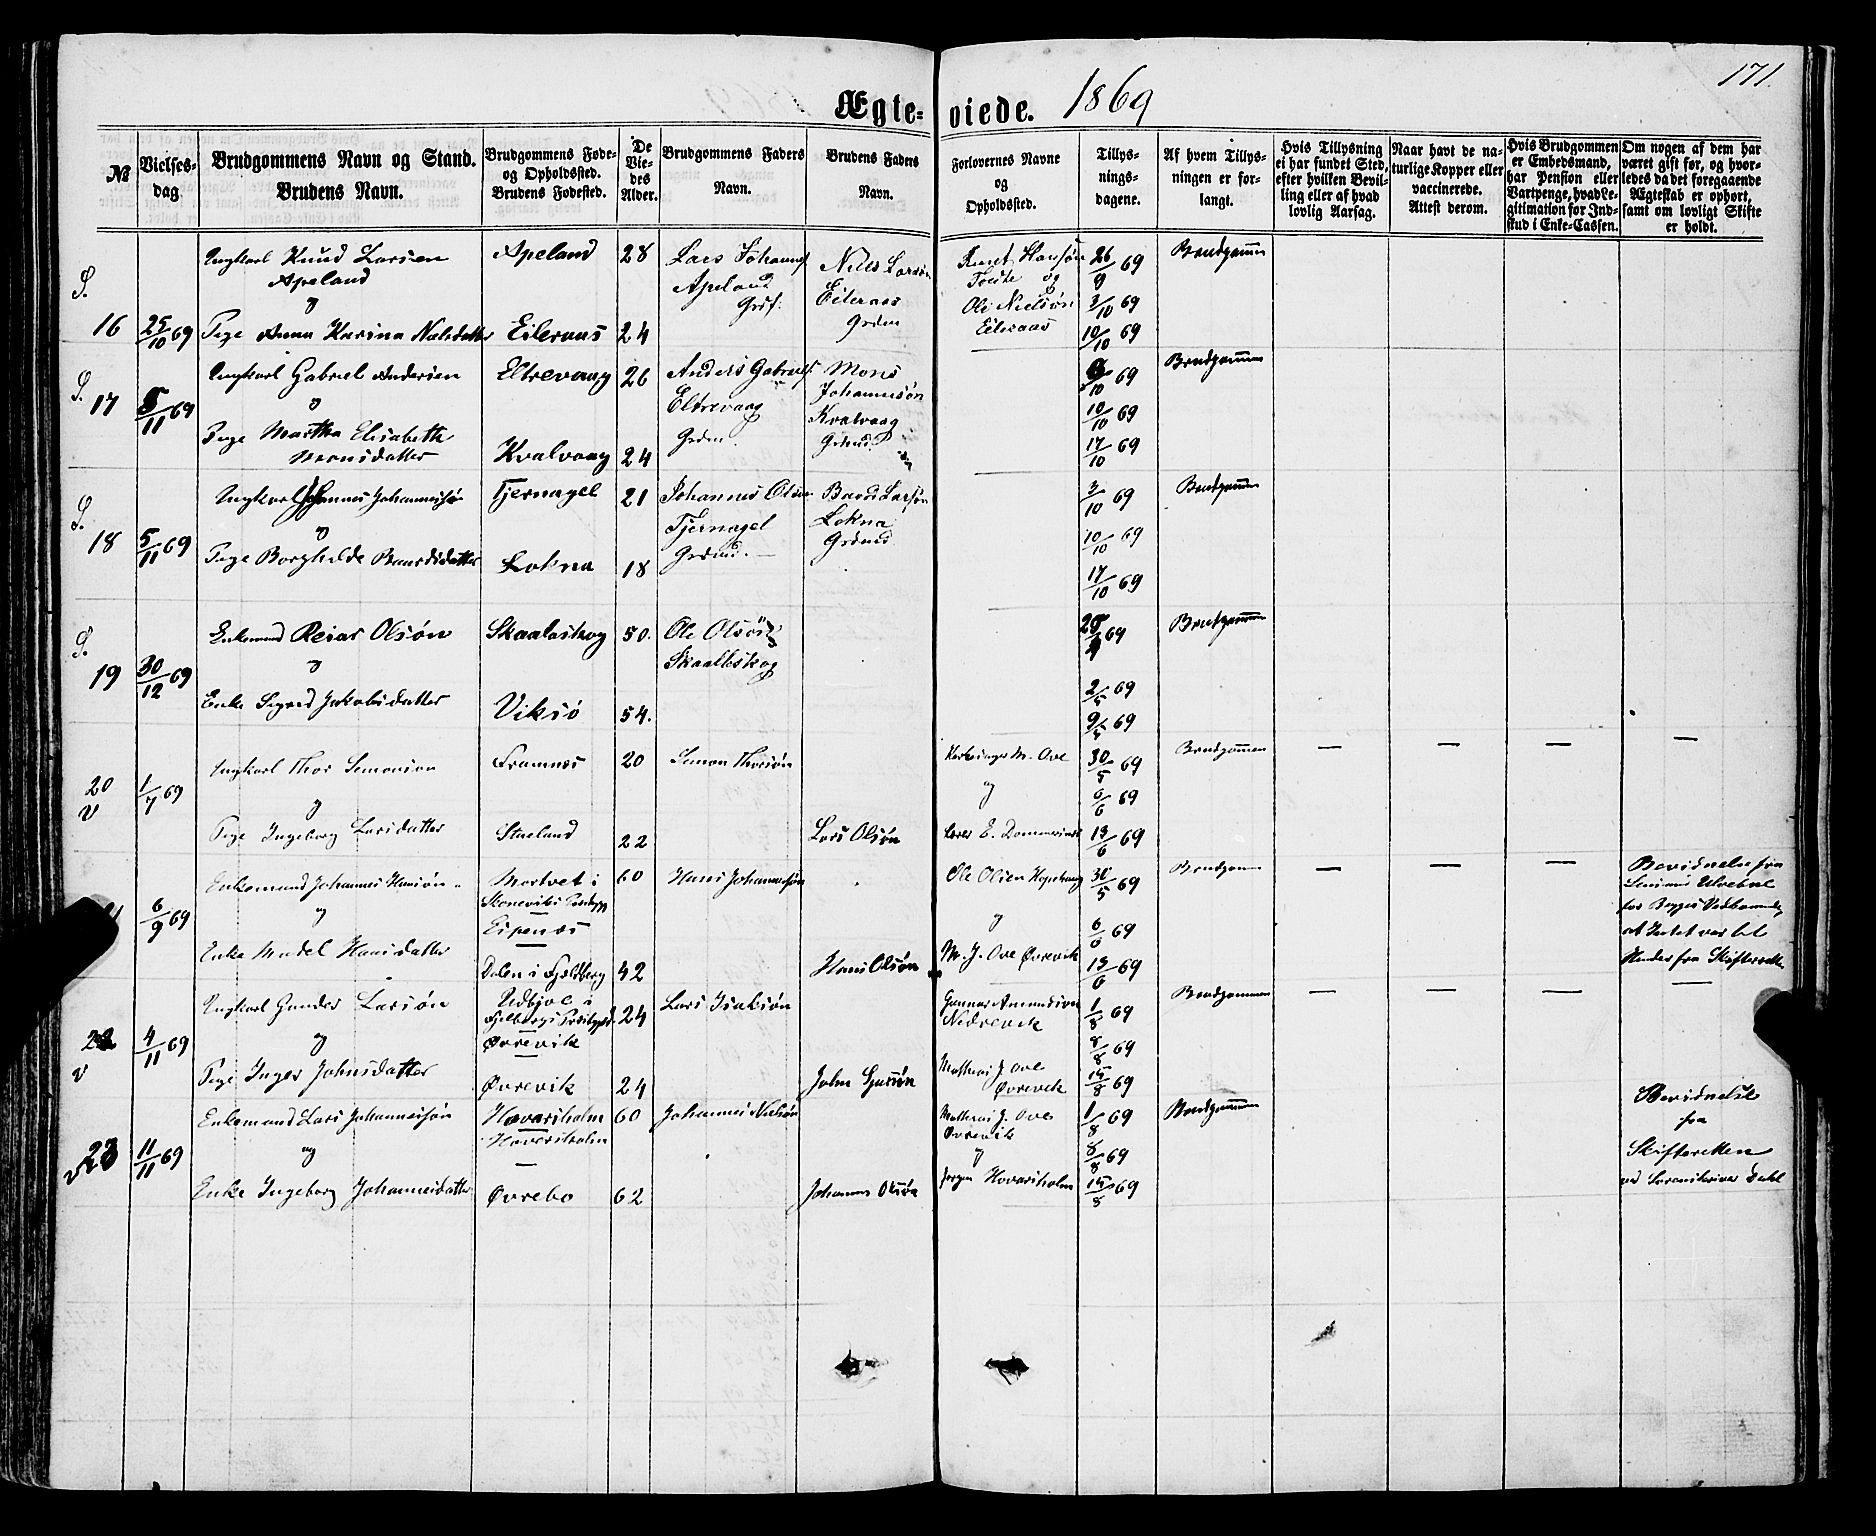 171.
Ægte-viede. 1869
№
Vielses-
dag
Brudgommens Navn og Stand.
Brudens Navn.
Brudgommens Føde-
og Opholdssted.
Brudens Fødested.
De
Vie-
des
Alder.
Brudgommens Faders
Navn.
Brudens Faders
Navn.
Forlovernes Navne
og
Opholdssted.
Tillys-
nings-
dagene.
Af hvem Tillys-
ningen er for-
langt.
Hvis Tillysning
ei har fundet Sted,
efter hvilken Bevil-
ling eller af hvad
lovlig Aarsag.
Naar havt de na-
turlige Kopper eller
vaccinerede.
Attest derom.
Hvis Brudgommen
er Embedsmand,
har Pension eller
Vartpenge, hvad Le-
gitimation for Ind-
skud i Enke-Cassen.
Om nogen af dem har
været gift før, og hvor-
ledes da det foregaaende
Ægteskab er ophørt,
samt om lovligt Skifte
er holdt.
S.
16
25/10 69
Ungkarl Knud Larsen
Apeland
og
Pige Anna Karina Nilsdatter
Apeland
Eileraas
28
24
Lars Johannes
Apeland
Grdf.
Niels Larsøn
Eileraas
Grdm
Knut Hansøn
og
Ole Nielsøn
Eileraas
26/9 69
3/10 69
10/10 69
Brudgommen
S.
17
5/11 69
Ungkarl Gabriel Andersen
og
Pige Martha Elisabeth
Monsdatter
Eltrevaag
Kvalvaag
26
24
Anders Gabriels
Eltrevaag
Grdm.
Mons
Johannesøn
Kvalvaag
Grdmd.
/10 69
10/10 69
17/10 69
Brudgommen
S.
18
5/11 69
Ungkarl Johannes Johannessøn
og
Pige Borghilde Baardsdatter
Tjernagel
Lokna
21
18
Johannes Olsen
Tjernagel
Grdmd.
Baard Larsøn
Lokna
Grdmd
3/10 69
10/10 69
17/10 69
Brudgommen
S.
19
30/12 69
Enkemand Reiar Olsøn
og
Enke Sigrid Jakobsdatter
Skaaleskog
Viksø
50.
54.
Ole Olsøn
Skaaleskog
25/4 69
2/5 69
9/5 69
Brudgommen
20
v
1/7 69
Ungkarl Thor Simonson
og
Pige Ingeborg Larsdatter
Framnæs
Staeland
20
22
Simon Thorsøn
Lars Olsøn
M. Ove
og
Lærer E.
30/5 69
6/6 69
13/6 69
Brudgommen
6/9 69
Enkemand Johannes Hansøn
og
Enke Madel Hansdatter
Mortvet i
Skoneviks Prstgj
Espenæs
Dalen i Fjeldberg
60
42
Hans Johannessøn
Hans Olsøn
Ole Olsen
og
M. J. Ove Øvrevik
30/5 69
6/6 69
13/6 69
Brudgom
Bevidnelse fra
for Begges Vedkommende
at Intet var til
Hinder fra Skifteretten
22
v
4/11 69
Ungkarl Gunder Larsøn
og
Pige Inger Johnsdatter
Udbjoe i
Fjelbergs Præstgjeld
Øvrevik
Øvrevik
24
24
Lars Isaksøn
John
Gunnar Amundsøn
Nedrevik
Mathias J Ove
Øvrevik
1/8 69
8/8 69
15/8 69
Brudgommen
23
v
11/11 69
Enkemand Lars Johannessøn
og
Enke Ingeborg Johannesdatter
Hovarsholm
Hovarsholm
Øvrebo
60
62
Johannes Nielsøn
Johannes Olsøn
Mathias J. Ove
Øvrevik
og
Jørgen Hovarsholm
1/8 69
8/8 69
15/8 69
Brudgommen
Bevidnelse
fra
Skifteretten
ved Sorenskriver Dahl